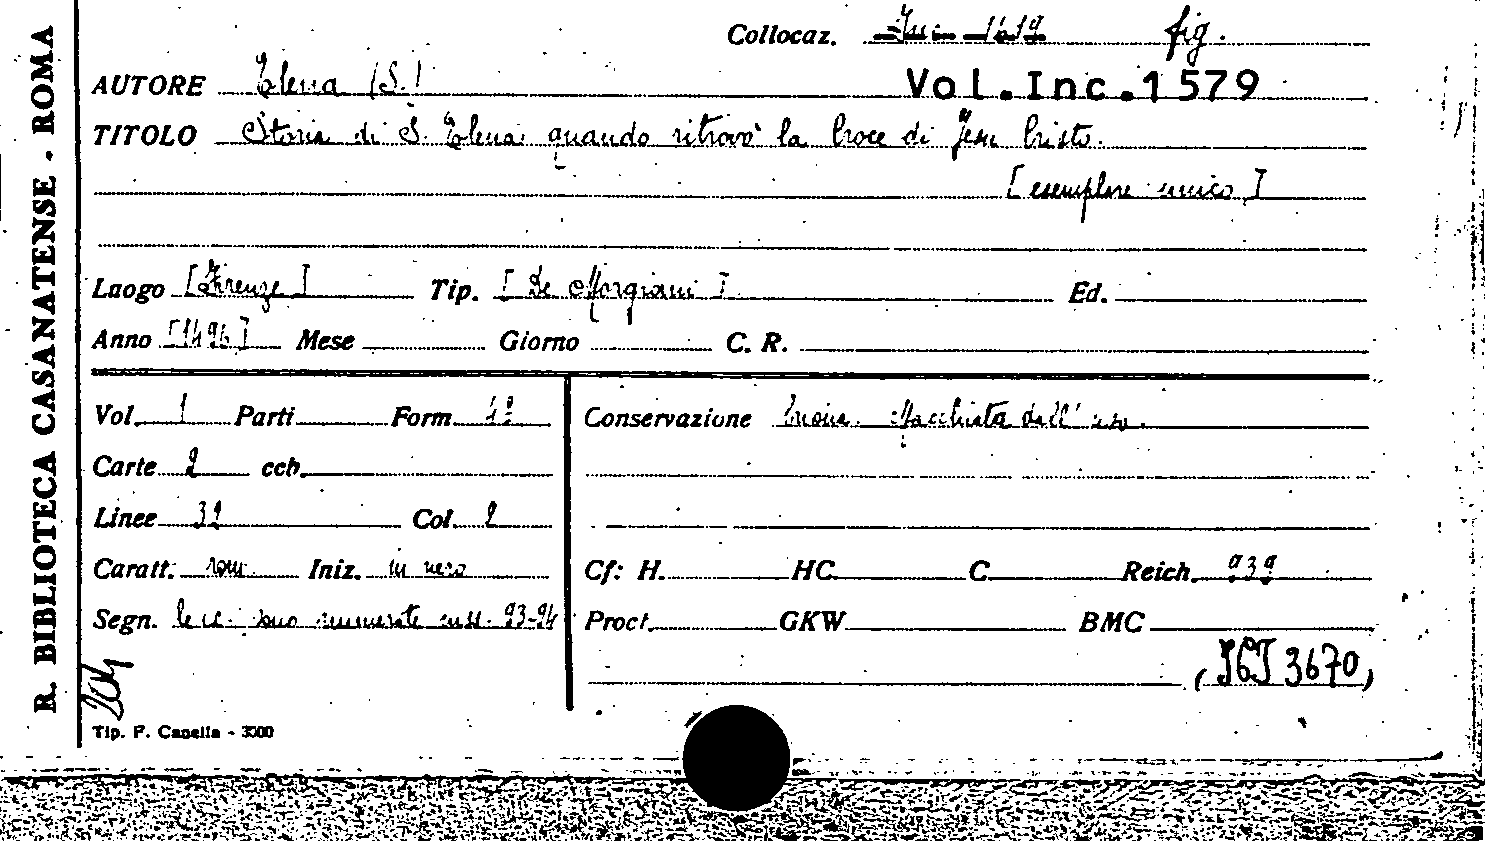 R. BIBLIOTECA CASANATENSE - ROMA
Collocaz. Inc. 1619 fig.
AUTORE Elena (S.) Vol.Inc.1579
TITOLO Storia di S. Elena quando ritrovò la Croce di Jesu Cristo.
[esemplare unico]
Luogo [Firenze] Tip. [De Morgiani] Ed.
Anno [1496] Mese Giorno C. R.
Vol. 1 Parti Form. 4º Conservazione buona. Macchiata dall' uso.
Carte 2 ccb.
Linee 32 Col. 2
Caratt. rom. Iniz. in nero Cf: H. HC. C. Reich. 939
Segn. le cc. sono numerate mss. 93-94 Proct. GKW. BMC
(IGI 3670)
204
Tip. F. Canella - 3000